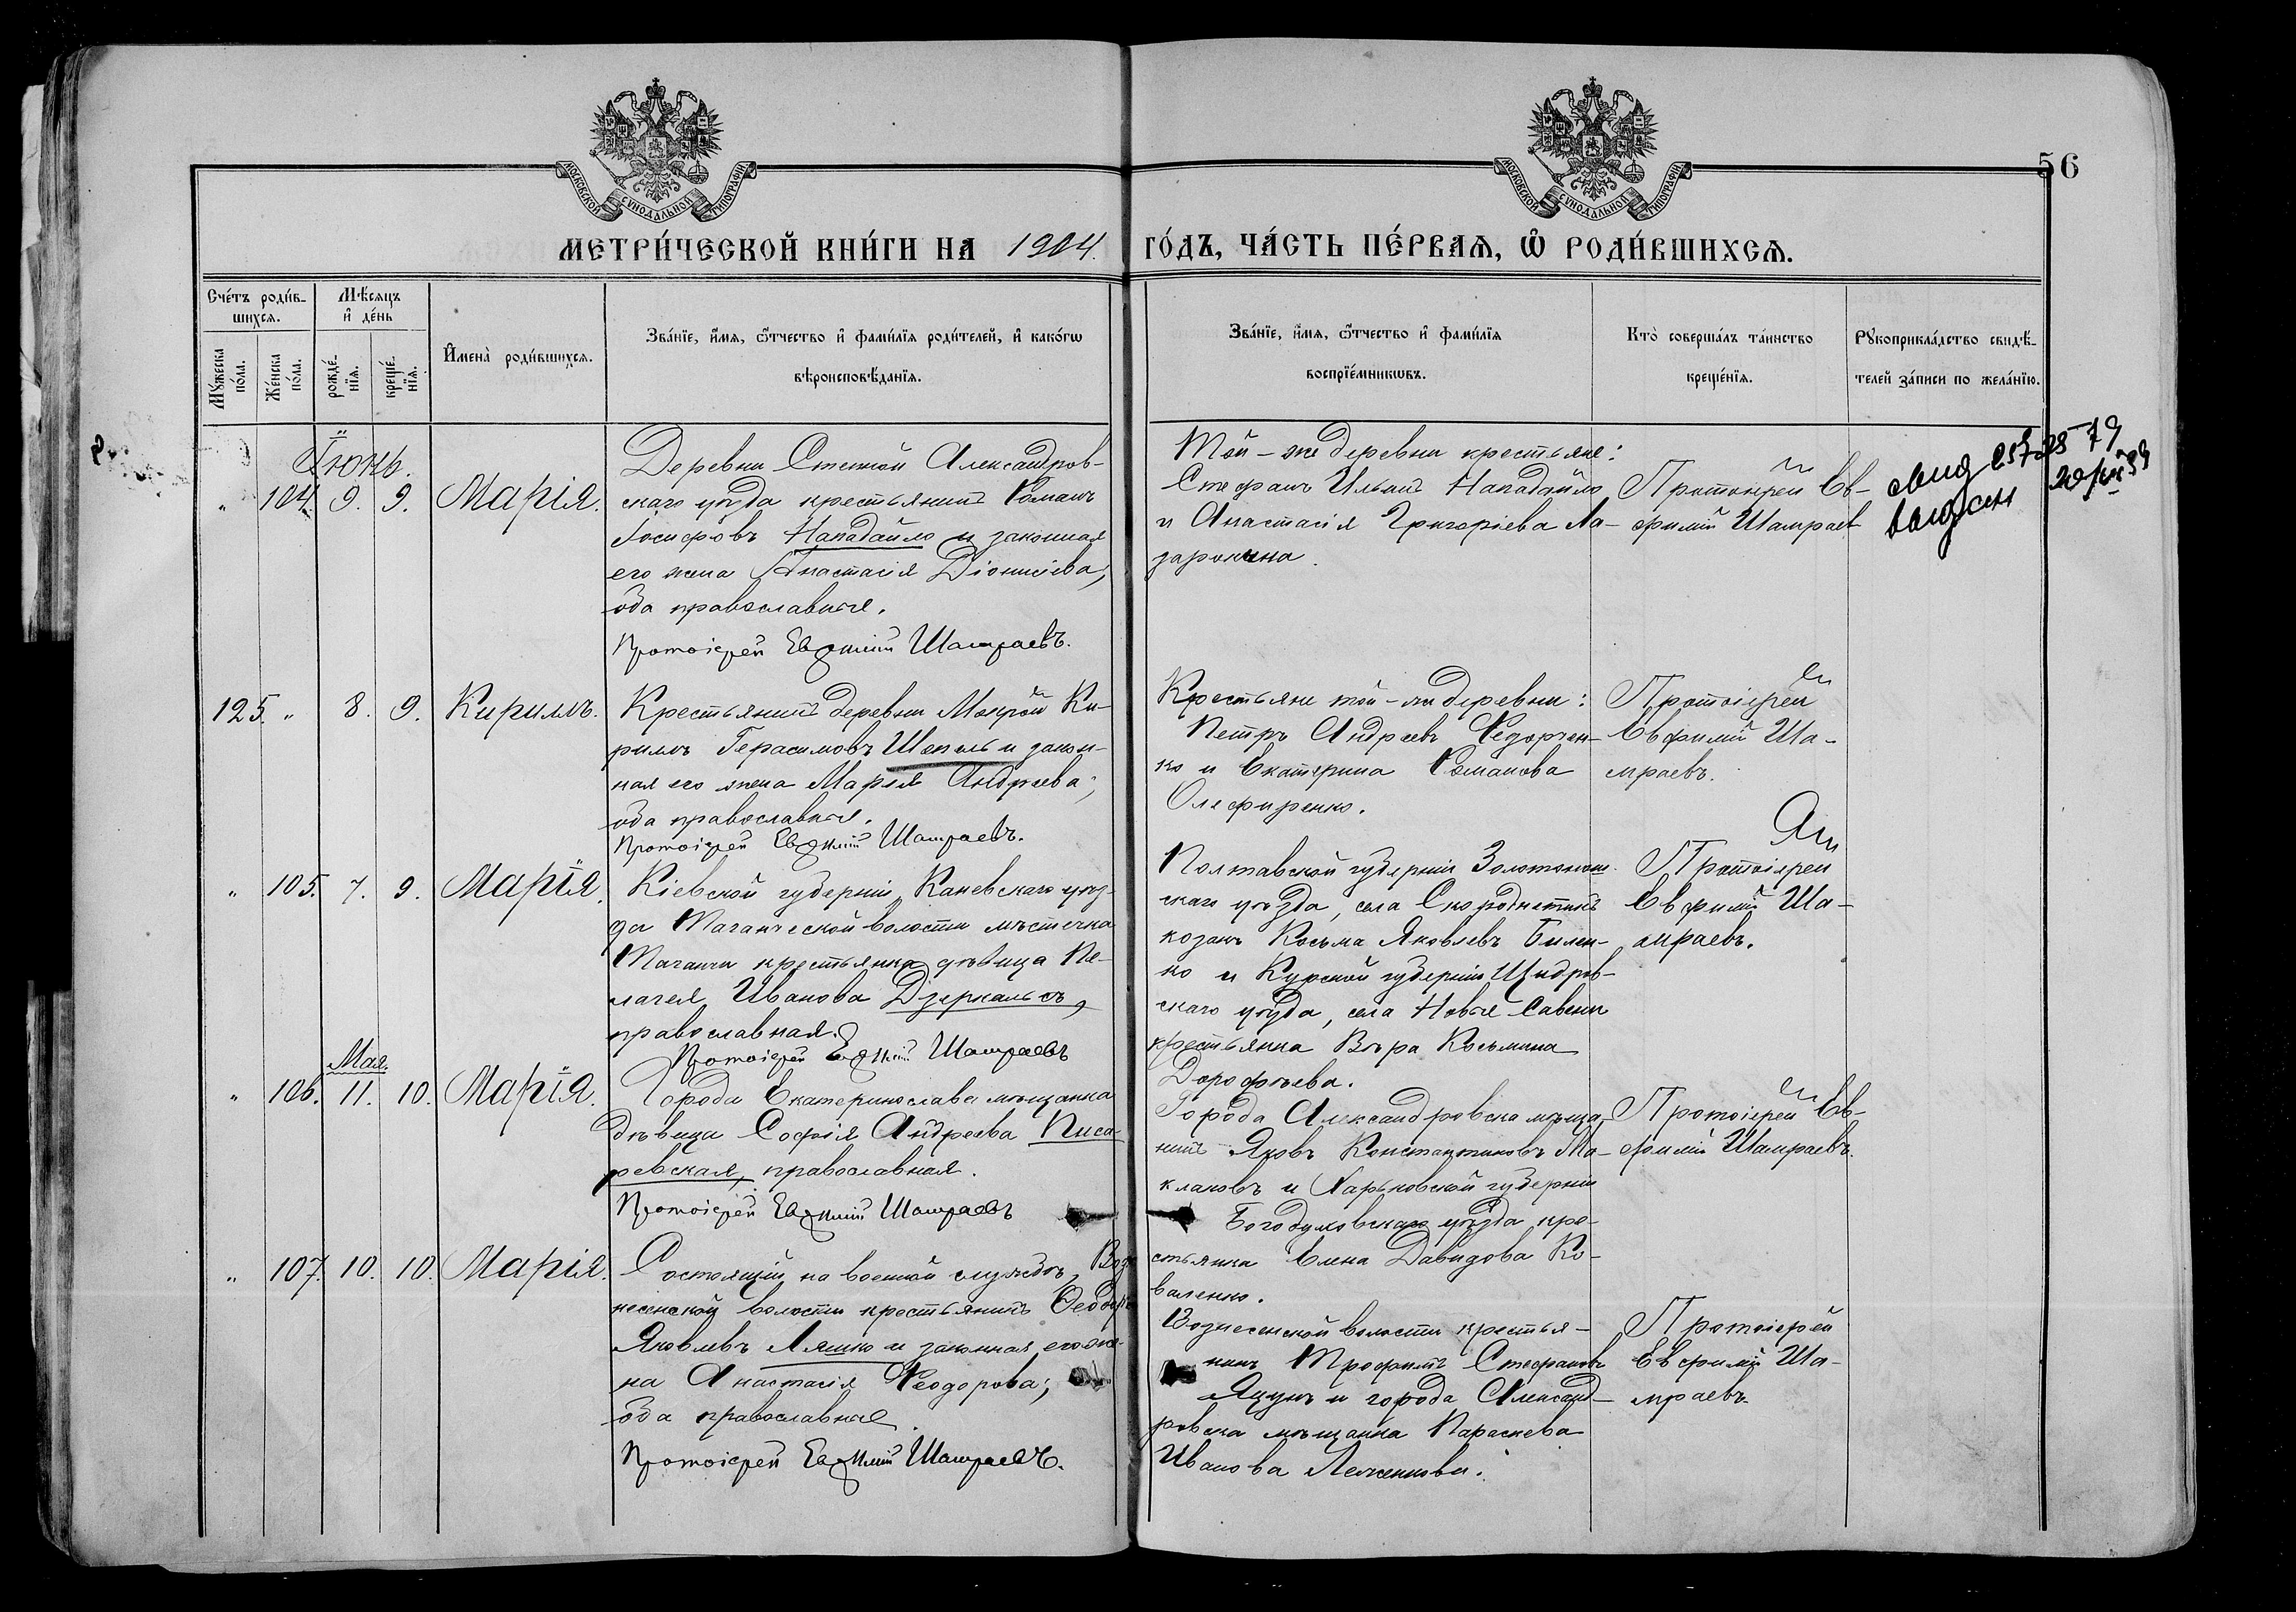 56
МОСКОВСКОЙ СѴНОДАЛЬНОЙ ТИПОГРАФІИ
МОСКОВСКОЙ СѴНОДАЛЬНОЙ ТИПОГРАФІИ
МЕТРИ́ЧЕСКОЙ КНИ́ГИ НА 1904. ГО́ДЪ, ЧА́СТЬ ПЕ́РВАЯ, Ѡ РОДИ́ВШИХСЯ.
Сче́тъ роди́в-
шихся.
Мꙋ́жеска по́ла.
Же́нска по́ла.
Мѣ́сяцъ
и҆ де́нь
рожде́-
нїя.
креще́-
нїя.
И҆мена̀ роди́вшихся.
Зва́нїе, и҆́мя, ѻ҆́тчество и҆ фами́лїя роди́телей, и҆ како́гѡ
вѣроисповѣ́данїя.
Зва́нїе, и҆́мя, ѻ҆́тчество и҆ фами́лїя
воспрїе́мникѡвъ.
Кто̀ соверша́лъ та́инство
креще́нїя.
Рꙋкоприкла́дство свидѣ́-
телей за́писи по жела́нїю.
Іюнь.
" 104. 9. 9. Марія.
Деревни Степной Александров-
скаго уѣзда крестьянинъ Романъ
Іосифовъ Нападайло и законная
его жена Анастасія Діонисіева,
оба православные.
Протоіерей Евѳимій Шамраевъ.
Той-же деревни крестьяне:
Стефанъ Ильинъ Нападайло
и Анастасія Григоріева Ла-
зарокина.
Протоіерей Ев-
фимій Шамраев
125. " 8. 9. Кириллъ.
Крестьянинъ деревни Мокрой Ки-
риллъ Герасимовъ Шепель и закон-
ная его жена Марія Андреева;
оба православные.
Протоіерей Евѳимій Шамраевъ.
Крестьяне той-же деревни:
Петръ Андреевъ Федорчен-
ко и Екатерина Романова
Олефиренко.
Протоіерей
Евфимій Ша-
мраевъ.
" 105. 7. 9. Марія.
Кіевской губерніи, Каневскаго уѣз-
да Таганческой волости мѣстечка
Таганчи крестьянка дѣвица Пе-
лагея Иванова Дзеркалесъ,
православная.
Протоіерей Евѳимій Шамраевъ
Полтавской губерніи Золотонош-
скаго уѣзда, села Скородистикъ
козакъ Косьма Яковлевъ Билен-
ко и Курской губерніи Щигров-
скаго уѣзда, села Новые Савени
крестьянка Вѣра Косьмина
Дорофѣева.
Протоіерей
Евфимій Ша-
мраевъ.
Мая.
" 106. 11. 10. Марія.
Города Екатеринослава мѣщанка
дѣвица Софія Андреева Писа-
ревская, православная.
Протоіерей Евѳимій Шамраевъ
Города Александровска мѣща-
нинъ Яковъ Константиновъ Ма-
клаковъ и Харьковской губерніи
Богодуховскаго уѣзда кре-
стьянка Елена Давидова Ко-
валенко.
Протоіерей Ев-
фимій Шамраевъ.
" 107. 10. 10. Марія.
Состоящій на военной службѣ, Воз-
несенской волости крестьянинъ Ѳеодоръ
Яковлевъ Ляшко и законная его же-
на Анастасія Феодорова;
оба православные
Протоіерей Евѳимій Шамраевъ.
Вознесенской волости крестья-
нинъ Трофимъ Стефановъ
Яцунъ и города Александ-
ровска мѣщанка Параскева
Иванова Левченкова.
Протоіерей
Евфимій Ша-
мраевъ.